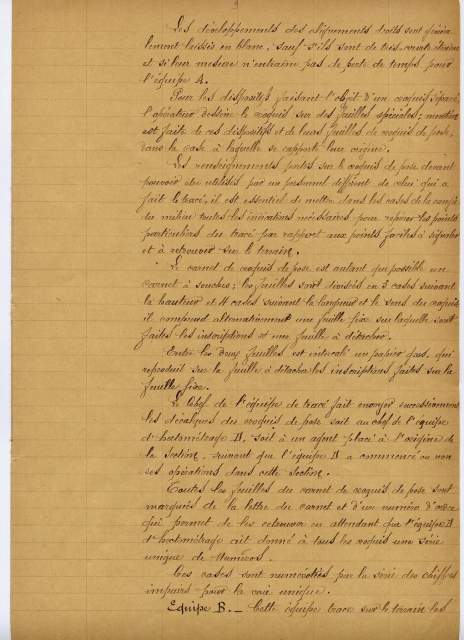 Les développements des alignements droits sont généra-
lement laissés en blanc, sauf s'ils sont de très courte étendue
et si leur mesure n'entraîne pas de perte de temps pour
l'équipe A.
Pour les dispositifs faisant l'objet d'un croquis séparé,
l'opérateur dessine le croquis sur des feuilles spéciales; mention
est faite de ces dispositifs et de leurs feuilles de croquis de pose,
dans la case à laquelle se rapporte leur origine.
Les renseignements portés sur le croquis de pose devant
pouvoir être utilisés par un personnel différent de celui qui a
fait le tracé, il est essentiel de mettre dans les cases de la
du milieu toutes les indications nécessaires pour repérer les points
particuliers du tracé par rapport aux points faciles à signaler
et à retrouver sur le terrain.
Le carnet de croquis de pose est autant que possible un
carnet à souches; les feuilles sont divisées en 3 cases suivant
la hauteur et 4 cases suivant la longueur et le sens du croquis
il comprend alternativement une feuille fixe sur laquelle sont
faites les inscriptions et une feuille à détacher.
Entre les deux feuilles est intercalé un papier qui
reproduit sur la feuille à détacher les inscriptions faites sur la
feuille fixe.
Le Chef de l'équipe de tracé fait envoyer successivement
les décalques du croquis de pose soit au chef de l'équipe
d'hectométrage B, soit à un agent placé à l'origine de
la Section, suivant que l'équipe B a commencé ou non
ses opérations dans cette Section.
Toutes les feuilles du carnet de croquis de pose sont
marquées de la lettre du carnet et d'un numéro d'ordre
qui permet de les retrouver en attendant que l'équipe B
d'hectométrage ait donné à tous les croquis une série
unique de Numéros.
Ces cases sont numérotées par la série des chiffres
impairs pour la voie unique.
Equipe B._ Cette équipe trace sur le terrain les